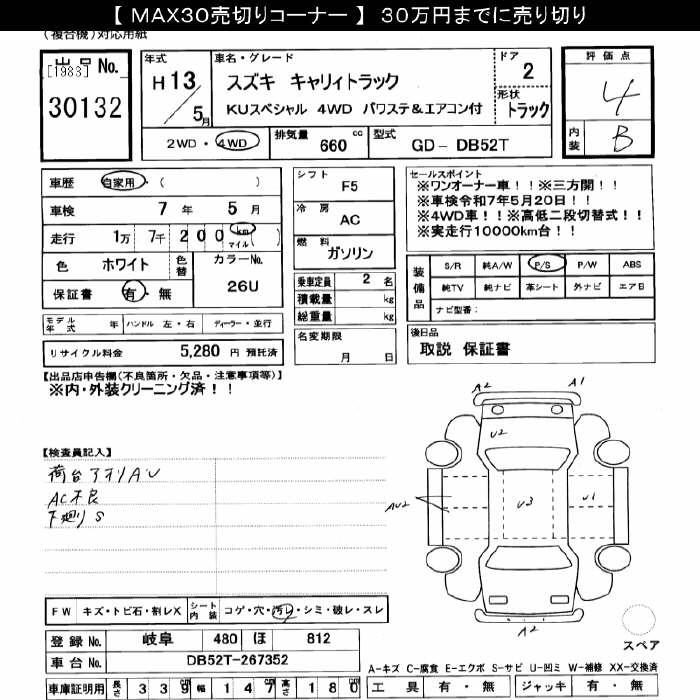 【 MAX30売切りコーナー 】 30万円までに売り切り
(複合機)対応用紙
出品No.
[1983]
30132
年式
H 13/5月
車名・グレード
スズキ キャリィトラック
KUスペシャル 4WD パワステ&エアコン付
ドア
2
形状
トラック
評価点
4
内装
B
2WD・4WD
排気量
660 cc
型式
GD-DB52T
車歴 自家用・( )
車検 7年 5月
走行 1万 7千 200 km マイル ( )
色 ホワイト 色替 カラーNo.
26U
保証書 有・無
シフト F5
冷房 AC
燃料 ガソリン
乗車定員 2 名
積載量 kg
総重量 kg
セールスポイント
※ワンオーナー車!!※三方開!!
※車検令和7年5月20日!!
※4WD車!!※高低二段切替式!!
※実走行10000km台!!
装備品
S/R 純A/W P/S P/W ABS
純TV 純ナビ 革シート 外ナビ エアB
ナビ型番:
モデル年式 年 ハンドル 左・右 ディーラー・並行
リサイクル料金 5,280 円 預託済
名変期限
月 日
後日品
取説 保証書
【出品店申告欄(不良箇所・欠品・注意事項等)】
※内・外装クリーニング済!!
【検査員記入】
荷台アオリAU
AC不良
下廻りS
A2
A1
U2
AU2
U3
U1
A2
スペア
FW キズ・トビ石・割レX シート内装 コゲ・穴・汚レ・シミ・破レ・スレ
登録No. 岐阜 480 ほ 812
車台No. DB52T-267352
A-キズ C-腐食 E-エクボ S-サビ U-凹ミ W-補修 XX-交換済
車庫証明用 長さ 339 cm 幅 147 cm 高さ 180 cm
工具 有・無 ジャッキ 有・無